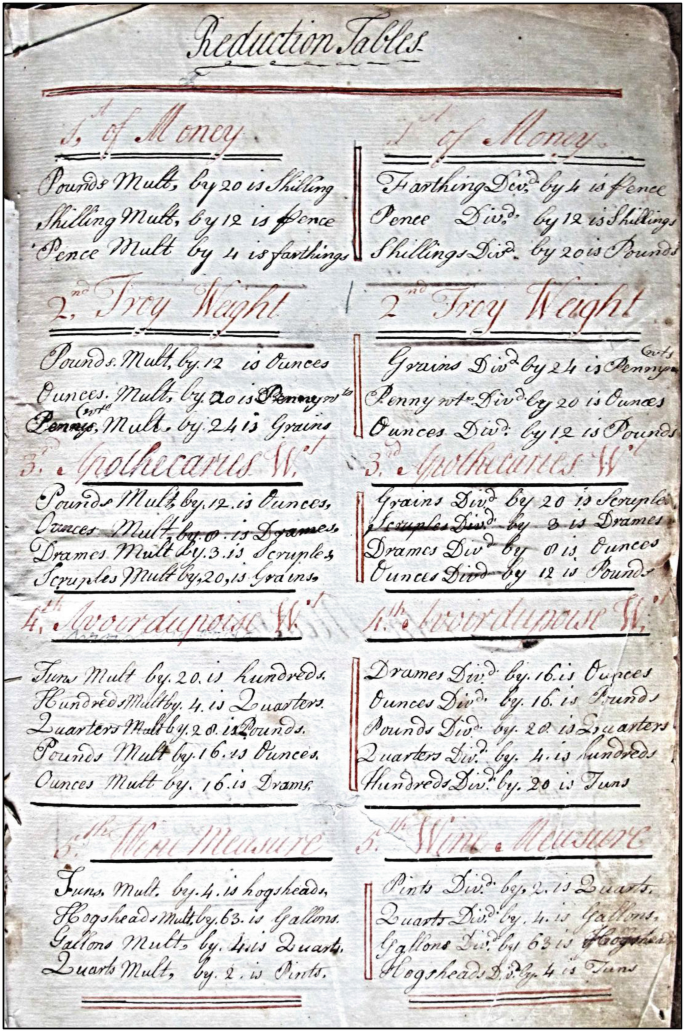 Reduction Tables
1st of Money
Pounds Mult, by 20 is Shilling
Shilling Mult, by 12 is Pence
Pence Mult by 4 is farthings
2nd Troy Weight
Pounds. Mult, by. 12 is Ounces
Ounces. Mult, by 20 is Pennywts
Pennywts, Mult, by. 24 is Grains
3d Apothecaries Wt
Pounds Mult, by. 12. is Ounces,
Ounces Mult, by. 8. is Drames,
Drames. Mult, by. 3. is Scruples,
Scruples Mult by, 20, is Grains,
4th Avoirdupoise Wt
Tuns Mult by. 20. is hundreds.
Hundreds Mult by. 4. is Quarters.
Quarters Mult by. 28. is Pounds.
Pounds Mult by. 16. is Ounces.
Ounces Mult by. 16 is Drams.
5th Wine Measure
Tuns. Mult. by. 4. is hogsheads,
Hogsheads Mult, by, 63. is Gallons.
Gallons Mult, by. 4. is Quarts.
Quarts Mult, by. 2. is Pints.
1st of Money
Farthing Divd. by 4 is Pence
Pence Divd. by 12 is Shillings
Shillings Divd. by 20 is Pounds
2nd Troy Weight
Grains Divd by 24 is Pennywts
Pennywts Divd by 20 is Ounces
Ounces Divd. by 12 is Pounds
3d Apothecaries Wt
Grains Divd by 20 is Scruples
Scruples Divd by 3 is Drames
Drames Divd by 8 is Ounces
Ounces Divd by 12 is Pounds
4th. Avoirdupoise Wt
Drames Divd. by. 16. is Ounces
Ounces Divd. by. 16. is Pounds
Pounds Divd. by. 28 is Quarters
Quarters Divd. by. 4. is hundreds
Hundreds Divd. by. 20 is Tuns
5th Wine Measure
Pints Divd. by, 2. is Quarts.
Quarts Divd. by. 4. is Gallons.
Gallons Divd. by 63 is Hogshead
Hogsheads Divd. by. 4 is Tuns